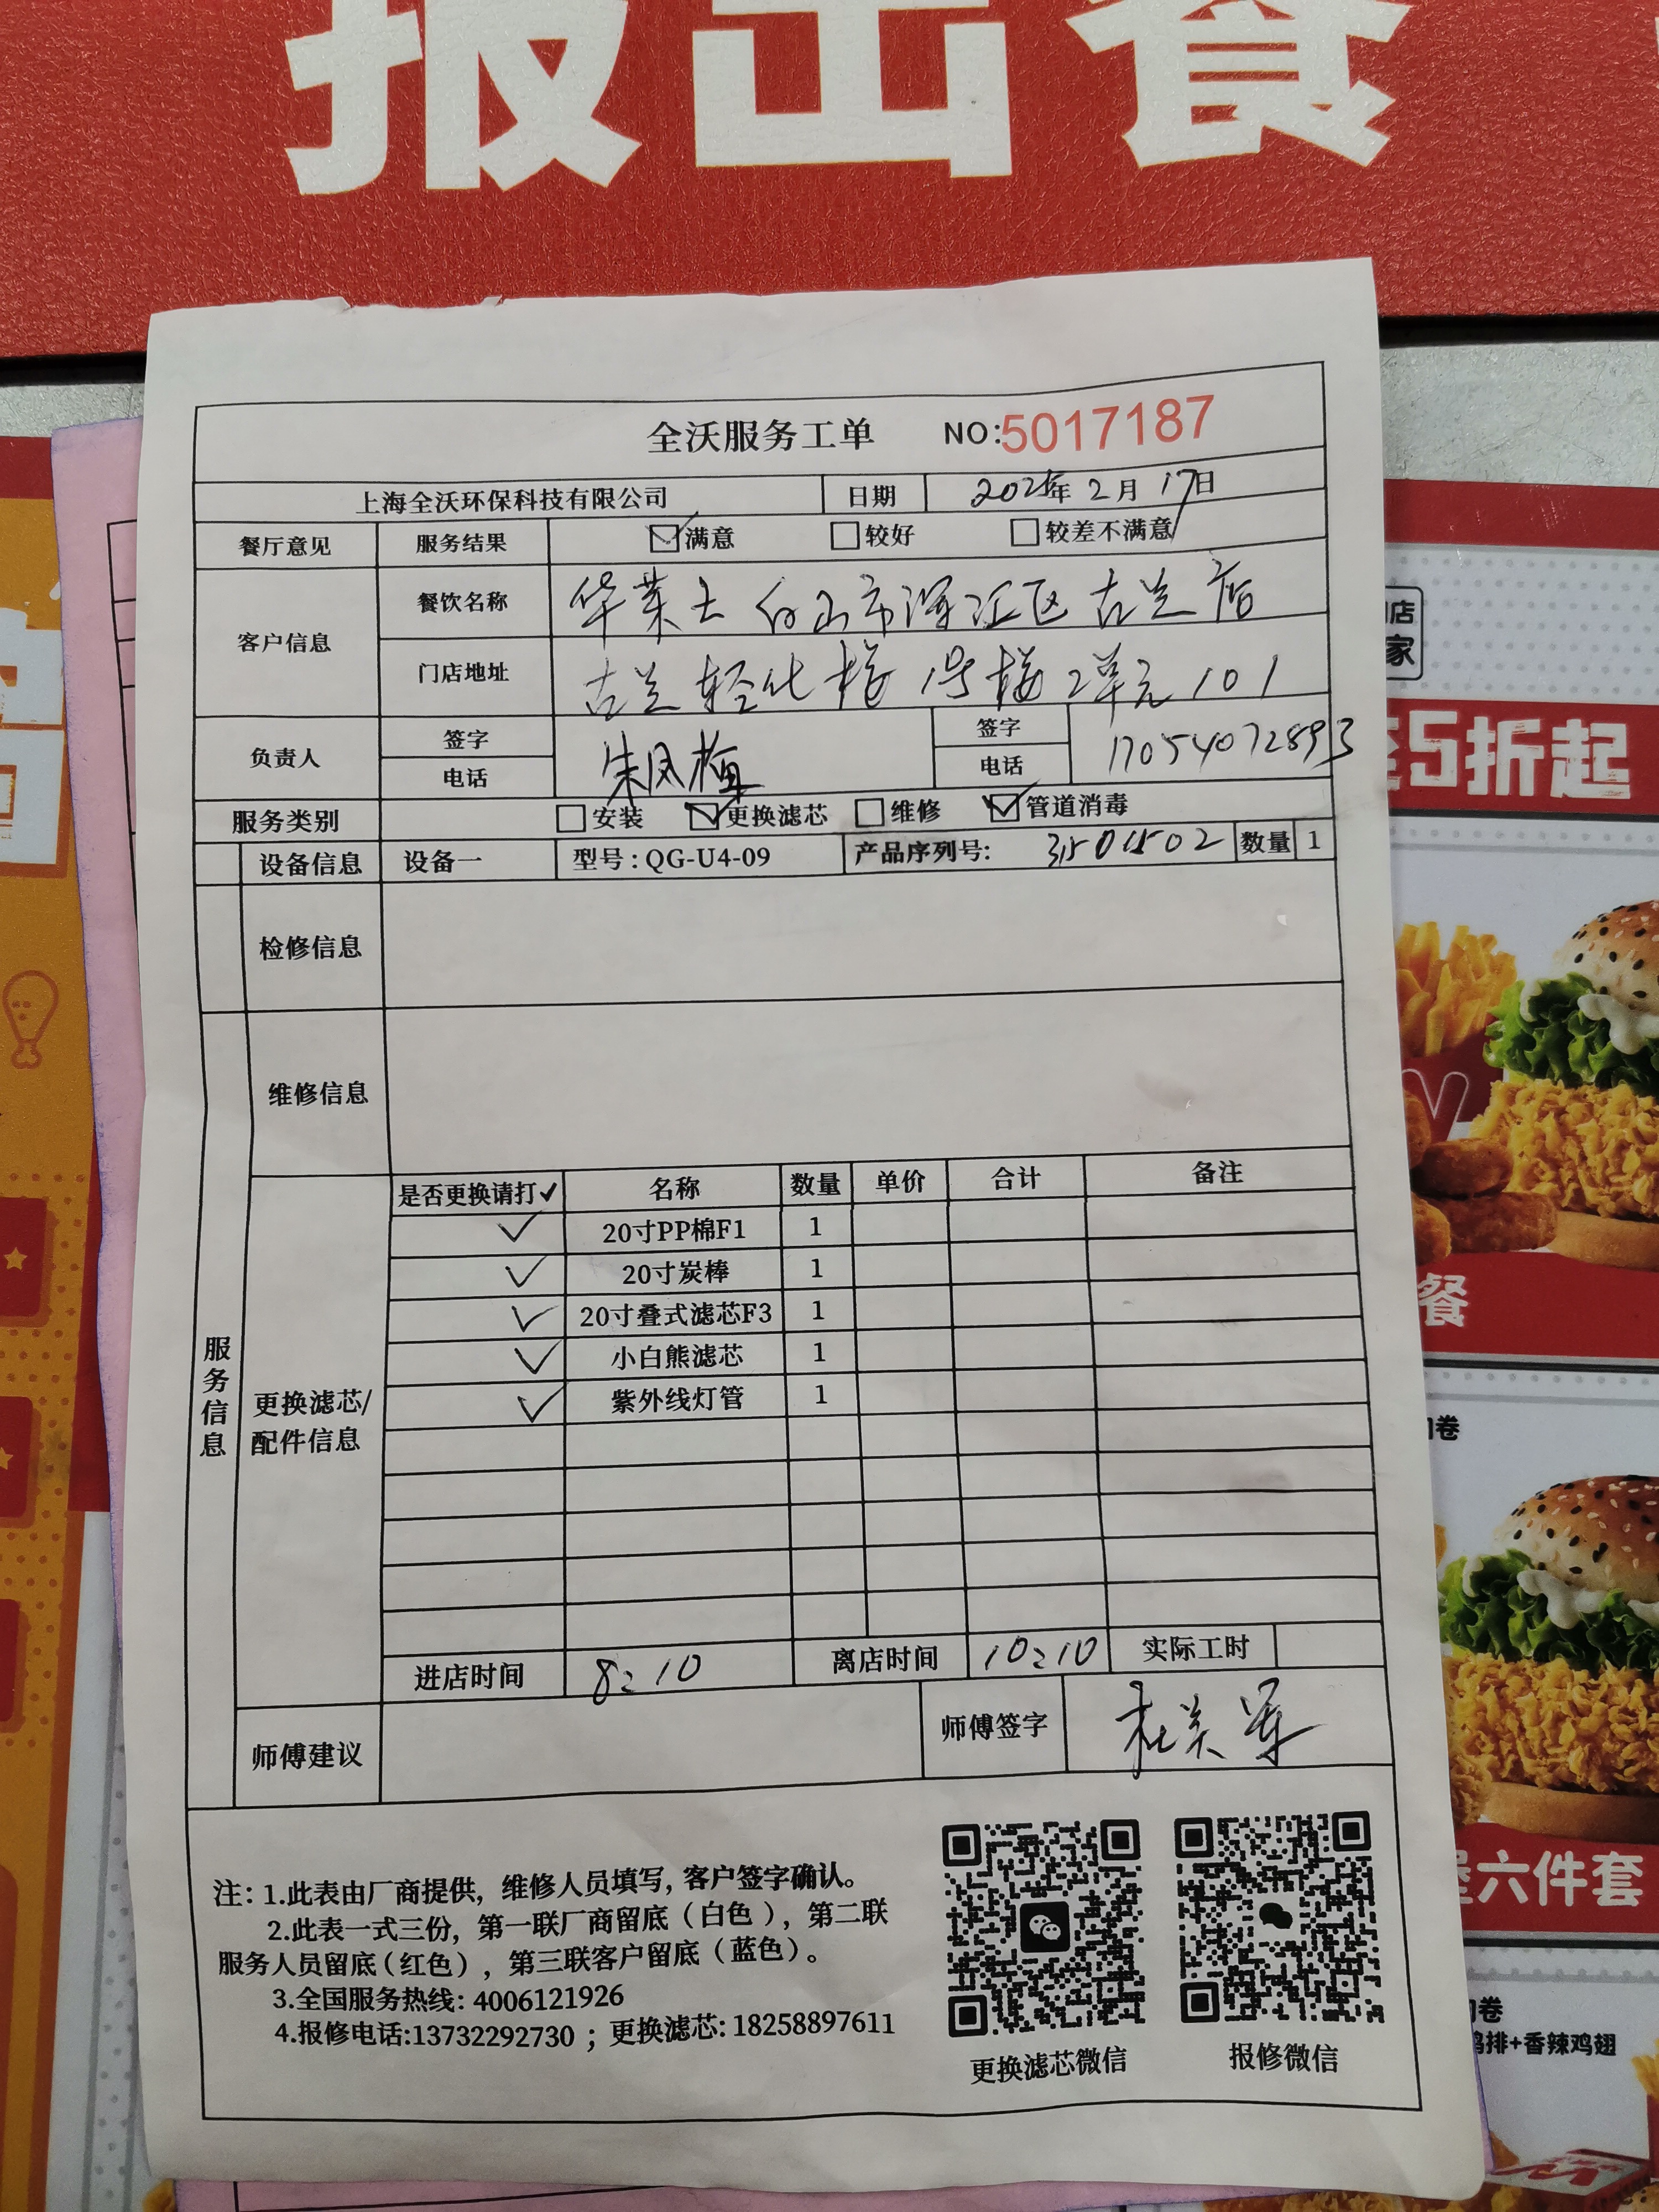 报出餐
全沃服务工单 NO:5017187
上海全沃环保科技有限公司 日期 2025年 2月 17日
餐厅意见 服务结果 满意 较好 较差不满意
客户信息 餐饮名称 华莱士 白山市浑江区 古兰店
门店地址 古兰轻化楼 1号楼 2单元 101
负责人 签字 电话 朱凤梅 签字 电话 17054072893
服务类别 安装 更换滤芯 维修 管道消毒
设备信息 设备一 型号:QG-U4-09 产品序列号: 数量 1
检修信息
维修信息
服务信息
更换滤芯/配件信息
是否更换请打✓ 名称 数量 单价 合计 备注
✓ 20寸PP棉F1 1
✓ 20寸炭棒 1
✓ 20寸叠式滤芯F3 1
✓ 小白熊滤芯 1
✓ 紫外线灯管 1
进店时间 8:10 离店时间 10:10 实际工时
师傅建议 师傅签字
注: 1.此表由厂商提供, 维修人员填写, 客户签字确认。
2.此表一式三份, 第一联厂商留底(白色), 第二联
服务人员留底(红色), 第三联客户留底(蓝色)。
3.全国服务热线: 4006121926
4.报修电话:13732292730 ; 更换滤芯: 18258897611
更换滤芯微信 报修微信
店
家
5折起
餐
卷
六件套
卷
鸡排+香辣鸡翅